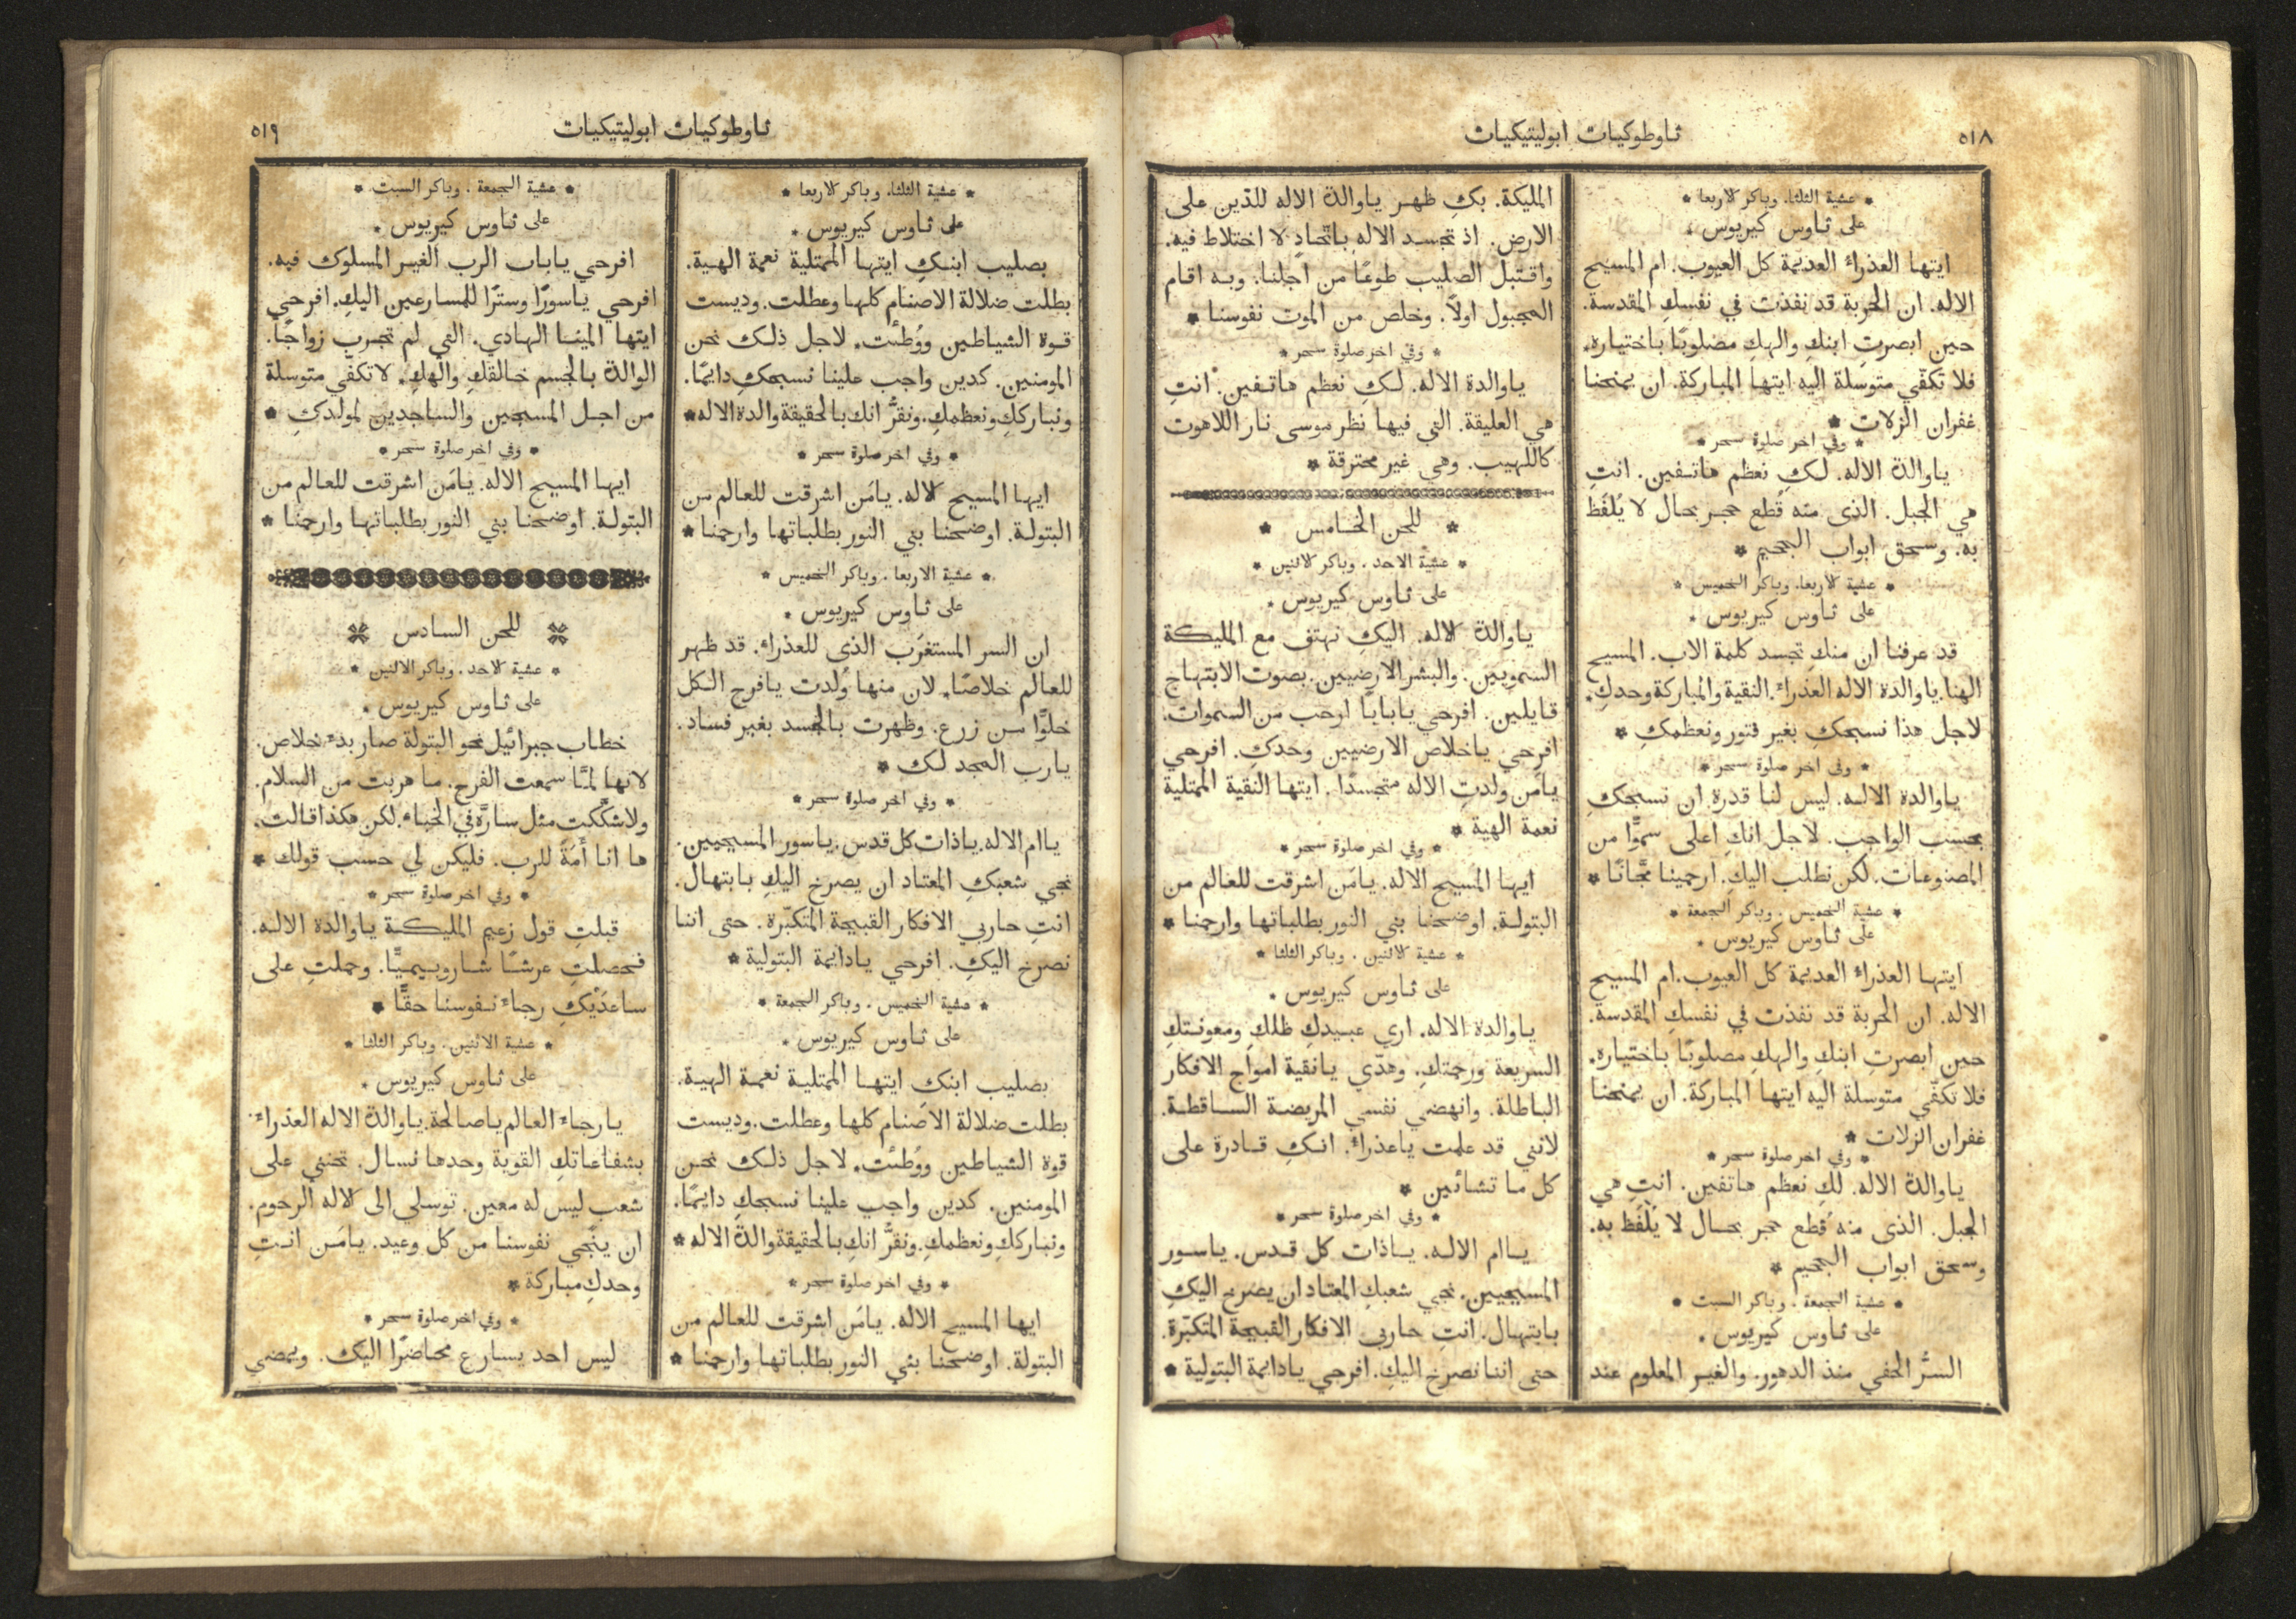 ٥١٨
ثاوطوكيات ابوليتيكيات
* عشية الثلثا. وباكر الاربعا *
على ثاوس كيريوس *
ايتها العذراء العديمة كل العيوب. ام المسيح
الاله. ان الحربة قد نفذت في نفسكِ المقدسة.
حين ابصرتِ ابنكِ والهكِ مصلوبًا باختياره.
فلا تكفّي متوسلة اليه ايتها المباركة. ان يمنحنا
غفران الزلات *
* وفي اخر صلوة سحر *
ياوالدة الاله. لكِ نعظم هاتفين. انتِ
هي الجبل. الذى منه قُطع حجر بحال لا يُلفَظ
به. وسحق ابواب الجحيم *
* عشية الاربعا. وباكر الخميس *
على ثاوس كيريوس *
قد عرفنا ان منكِ تجسد كلمة الاب. المسيح
الهنا. ياوالدة الاله العذراء. النقية والمباركة وحدكِ.
لاجل هذا نسبحكِ بغير فتور ونعظمكِ *
* وفي اخر صلوة سحر *
ياوالدة الاله. ليس لنا قدرة ان نسبحكِ
بحسب الواجب. لاجل انكِ اعلى سموًّا من
المصنوعات. لكن نطلب اليكِ. ارحمينا مجّانًا *
* عشية الخميس. وباكر الجمعة *
على ثاوس كيريوس *
ايتها العذراء العديمة كل العيوب. ام المسيح
الاله. ان الحربة قد نفذت في نفسكِ المقدسة.
حين ابصرتِ ابنكِ والهكِ مصلوبًا باختياره.
فلا تكفّي متوسلة اليه ايتها المباركة. ان يمنحنا
غفران الزلات *
* وفي اخر صلوة سحر *
ياوالدة الاله. لكِ نعظم هاتفين. انتِ هي
الجبل. الذى منه قُطع حجر بحال لا يُلفَظ به.
وسحق ابواب الجحيم *
* عشية الجمعة. وباكر السبت *
على ثاوس كيريوس *
السرُّ الخفي منذ الدهور. والغير المعلوم عند
المليكة. بكِ ظهر ياوالدة الاله للذين على
الارض. اذ تجسد الاله باتّحادٍ لا اختلاط فيه.
واقتبل الصليب طوعًا من اجلنا. وبه اقام
المجبول اولًا. وخلص من الموت نفوسنا *
* وفي اخر صلوة سحر *
ياوالدة الاله. لكِ نعظم هاتفين. انتِ
هي العليقة. التي فيها نظر موسى نار اللاهوت
كاللهيب. وهي غير محترقة *
* للحن الخامس *
* عشية الاحد. وباكر الاثنين *
على ثاوس كيريوس *
ياوالدة الاله. اليكِ نهتف مع المليكة
السمويين. والبشر الارضيين. بصوت الابتهاج
قايلين. افرحي يابابًا ارحب من السموات.
افرحي ياخلاص الارضيين وحدكِ. افرحي
يامَن ولدتِ الاله متجسدًا. ايتها النقية الممتلية
نعمة الهية *
* وفي اخر صلوة سحر *
ايها المسيح الاله. يامَن اشرقت للعالم من
البتولة. اوضحنا بني النور بطلباتها وارحمنا *
* عشية الاثنين. وباكر الثلثا *
على ثاوس كيريوس *
ياوالدة الاله. اري عبيدكِ ظللكِ ومعونتكِ
السريعة ورحمتكِ. وهدّي يانقية امواج الافكار
الباطلة. وانهضي نفسي المريضة الساقطة.
لانني قد علمت ياعذراء. انكِ قادرة على
كل ما تشائين *
* وفي اخر صلوة سحر *
ياام الاله. ياذات كل قدس. ياسور
المسيحيين. نجي شعبكِ المعتاد ان يصرخ اليكِ
بابتهال. انتِ حاربي الافكار القبيحة المتكبّرة.
حتى اننا نصرخ اليكِ. افرحي يادايمة البتولية *
ثاوطوكيات ابوليتيكيات
٥١٩
* عشية الثلثا. وباكر الاربعا *
على ثاوس كيريوس *
بصليب ابنكِ ايتها الممتلية نعمة الهية.
بطلت ضلالة الاصنام كلها وعطلت. وديست
قوة الشياطين ووُطئت. لاجل ذلك نحن
المومنين. كدين واجب علينا نسبحكِ دايمًا.
ونباركِكِ ونعظمكِ. ونقرُّ انك بالحقيقة والدة الاله *
* وفي اخر صلوة سحر *
ايها المسيح الاله. يامَن اشرقت للعالم من
البتولة. اوضحنا بني النور بطلباتها وارحمنا *
* عشية الاربعا. وباكر الخميس *
على ثاوس كيريوس *
ان السر المستغرَب الذى للعذراء. قد ظهر
للعالم خلاصًا. لان منها وُلدت يافرج الكل
خلوًا من زرع. وظهرت بالجسد بغير فساد.
يارب المجد لك *
* وفي اخر صلوة سحر *
ياام الاله. ياذات كل قدس. ياسور المسيحيين.
نجي شعبكِ المعتاد ان يصرخ اليكِ بابتهال.
انتِ حاربي الافكار القبيحة المتكبّرة. حتى اننا
نصرخ اليكِ. افرحي يادايمة البتولية *
* عشية الخميس. وباكر الجمعة *
على ثاوس كيريوس *
بصليب ابنك ايتها الممتلية نعمة الهية.
بطلت ضلالة الاصنام كلها وعطلت. وديست
قوة الشياطين ووُطئت. لاجل ذلك نحن
المومنين. كدين واجب علينا نسبحكِ دايمًا.
ونباركِ ونعظمكِ. ونقرُّ انكِ بالحقيقة والدة الاله *
* وفي اخر صلوة سحر *
ايها المسيح الاله. يامَن اشرقت للعالم من
البتولة. اوضحنا بني النور بطلباتها وارحمنا *
* عشية الجمعة. وباكر السبت *
على ثاوس كيريوس *
افرحي ياباب الرب الغير المسلوك فيه.
افرحي ياسورًا وسترًا للمسارعين اليكِ. افرحي
ايتها المينا الهادي. التي لم تجرب زواجًا.
الوالدة بالجسم خالقكِ والهكِ. لا تكفّي متوسلة
من اجل المسبحين والساجدين لمولدكِ *
* وفي اخر صلوة سحر *
ايها المسيح الاله. يامَن اشرقت للعالم من
البتولة. اوضحنا بني النور بطلباتها وارحمنا *
للحن السادس
* عشية الاحد. وباكر الاثنين *
على ثاوس كيريوس *
خطاب جبرائيل نحو البتولة صار بدء خلاص.
لانها لمّا سمعت الفرح. ما هربت من السلام.
ولا شكّكت مثل سارَّة في الخباء. لكن هكذا قالت.
ها انا أَمَةٌ للرب. فليكن لي حسب قولك *
* وفي اخر صلوة سحر *
قبلتِ قول زعيم المليكة ياوالدة الاله.
فحصلتِ عرشًا شاروبيميًّا. وحملتِ على
ساعدَيْكِ رجاء نفوسنا حقًّا *
* عشية الاثنين. وباكر الثلثا *
على ثاوس كيريوس *
يارجاء العالم ياصالحة. ياوالدة الاله العذراء.
بشفاعاتكِ القوية وحدها نسال. تحنني على
شعب ليس له معين. توسلي الى الاله الرحوم.
ان ينجّي نفوسنا من كل وعيد. يامَن انتِ
وحدكِ مباركة *
* وفي اخر صلوة سحر *
ليس احد يسارع محاضرًا اليك. ويمضي